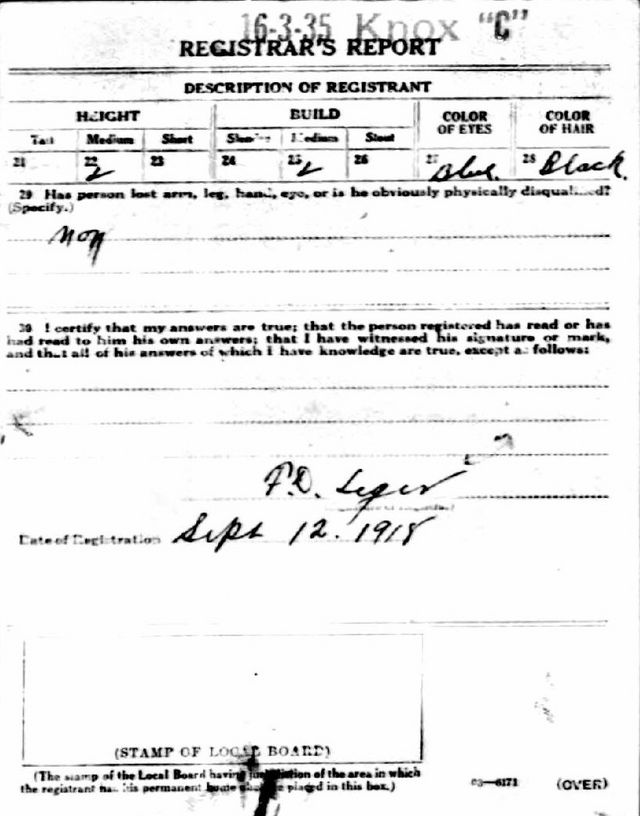 16-3-35 Knox "C"
REGISTRAR'S REPORT
DESCRIPTION OF REGISTRANT
HEIGHT BUILD COLOR OF EYES COLOR OF HAIR
Tall Medium Short Slender Medium Stout
21 22 23 24 25 26 27 Blue 28 Black
29 Has person lost arm, leg, hand, eye, or is he obviously physically disqualified?
(Specify.)
30 I certify that my answers are true; that the person registered has read or has
had read to him his own answers; that I have witnessed his signature or mark,
and that all of his answers of which I have knowledge are true, except as follows:
F.D. Leger
Date of Registration Sept 12. 1918
(STAMP OF LOCAL BOARD)
(The stamp of the Local Board having jurisdiction of the area in which
the registrant has his permanent home shall be placed in this box.)
03—6171 (OVER)